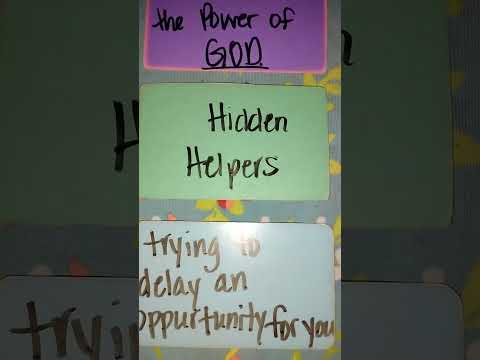 the Power of
GOD
Hidden
Helpers
trying to
delay an
oppurtunity for you